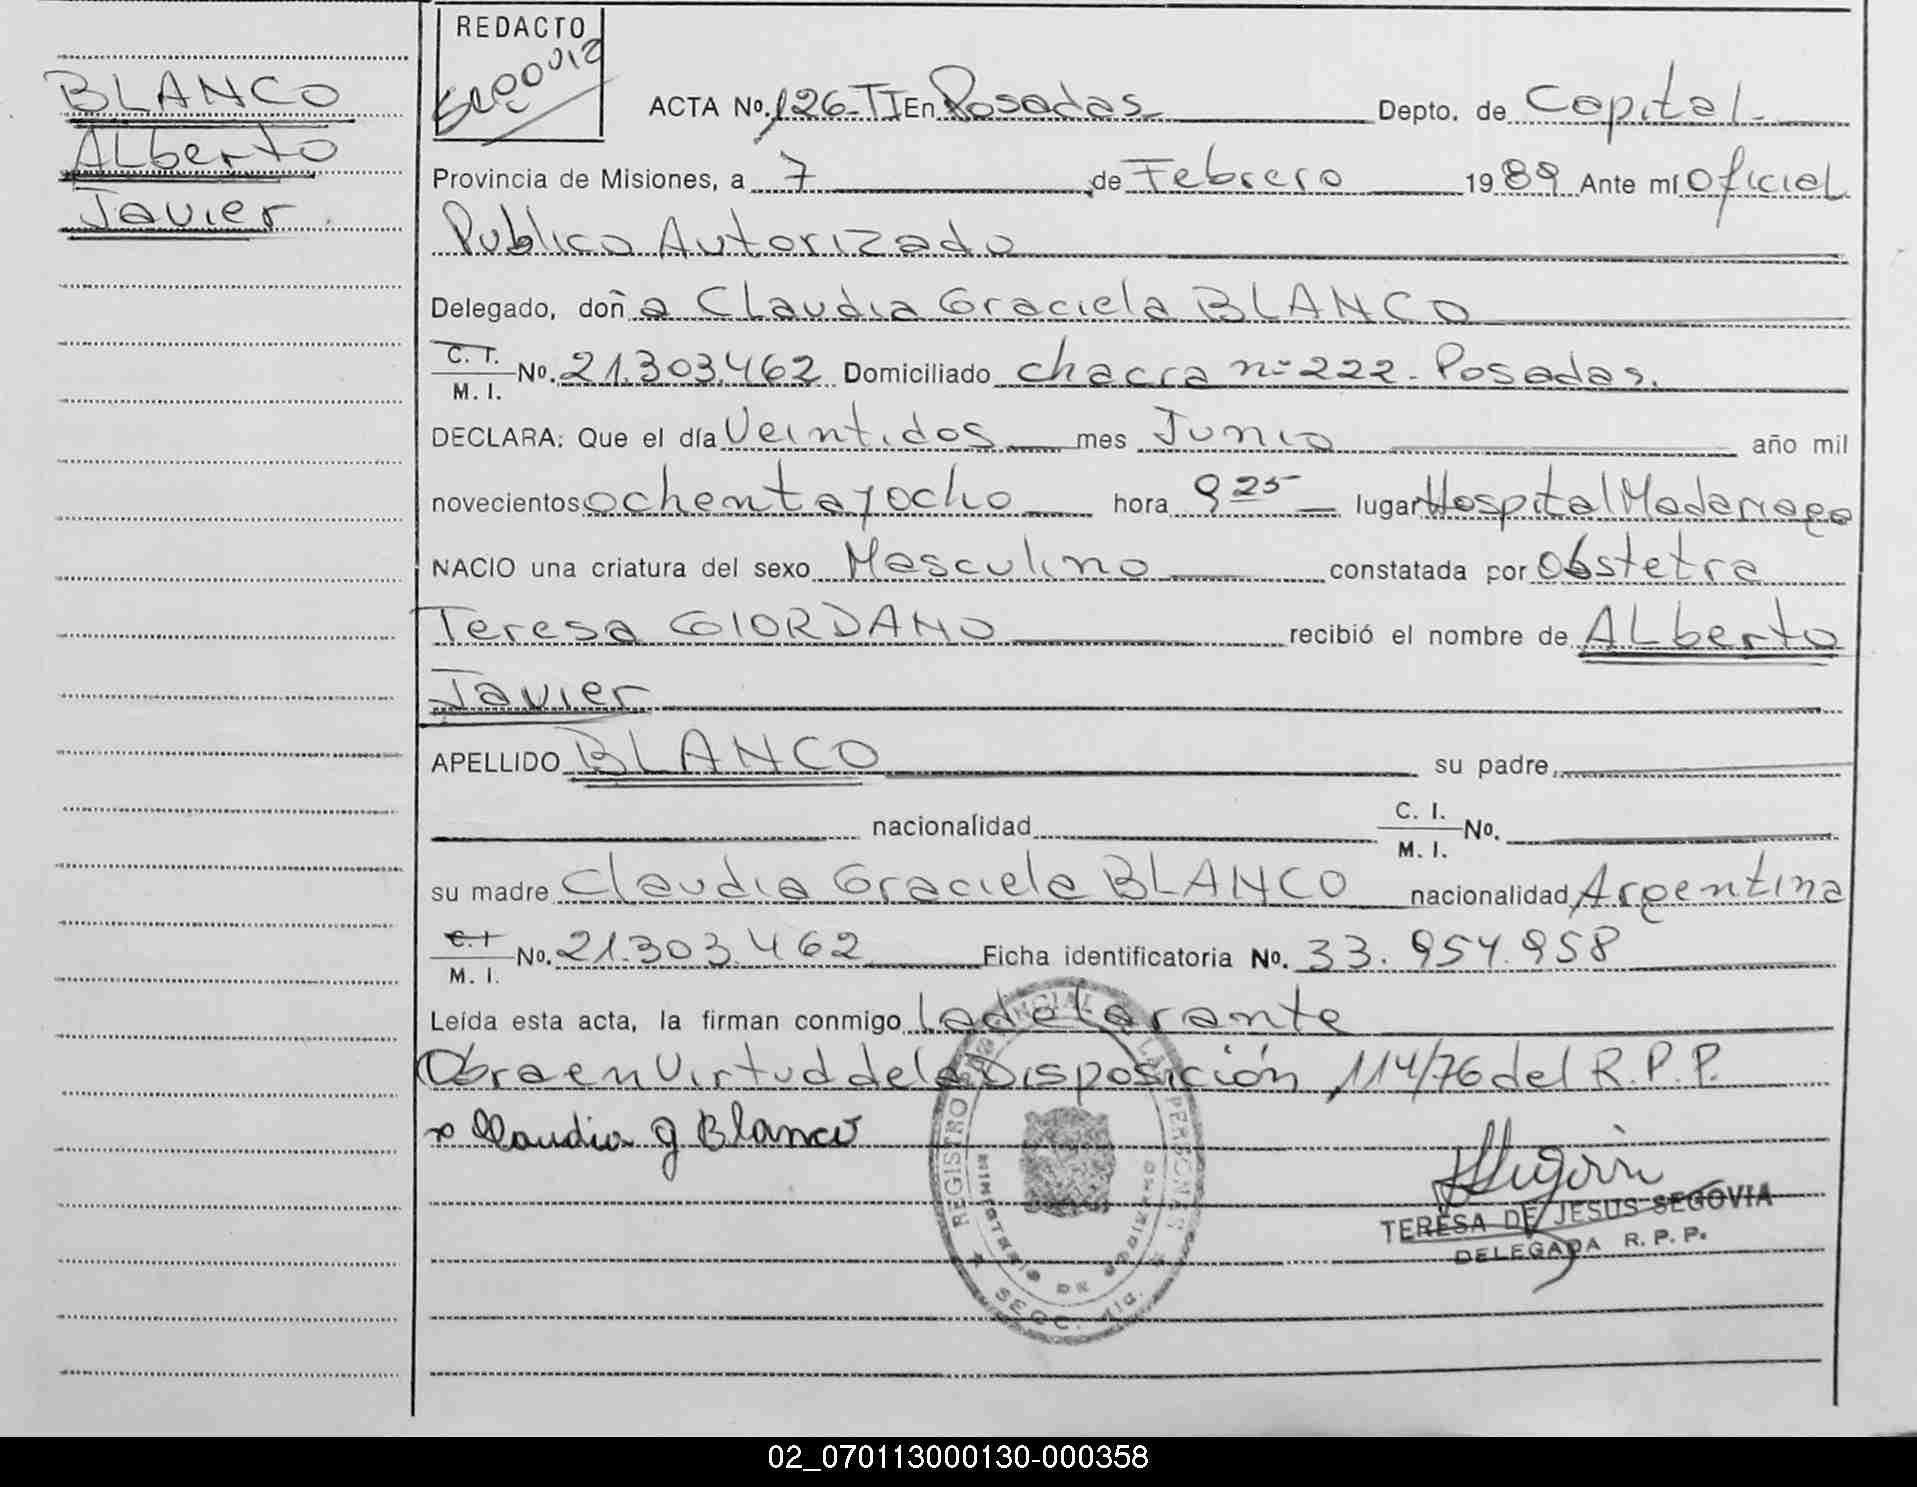 BLANCO
Alberto
Javier
REDACTO
Segovia
ACTA No. 126-TI En Posadas Depto. de Capital.
Provincia de Misiones, a 7 de Febrero 1989 Ante mí Oficial
Publico Autorizado
Delegado, doña Claudia Graciela BLANCO
C. I. M. I. No. 21.303.462 Domiciliado chacra n= 222 - Posadas.
DECLARA: Que el día Veintidos mes Junio año mil
novecientos ochenta y ocho hora 9 25 lugar Hospital Madariaga
NACIO una criatura del sexo Masculino constatada por Obstetra
Teresa GIORDANO recibió el nombre de Alberto
Javier
APELLIDO BLANCO su padre,
nacionalidad C. I. M. I. No.
su madre Claudia Graciela BLANCO nacionalidad Argentina
C. I M. I. No. 21.303.462 Ficha identificatoria No. 33.954.958
Leída esta acta, la firman conmigo la declarante
Obra en virtud de la Disposición 114/76 del R.P.P.
x Claudia g Blanco
REGISTRO PROVINCIAL DE LAS PERSONAS
MINISTERIO DE GOBIERNO
SECC. 1ra.
TERESA DE JESUS SEGOVIA
DELEGADA R. P. P.
02_070113000130-000358